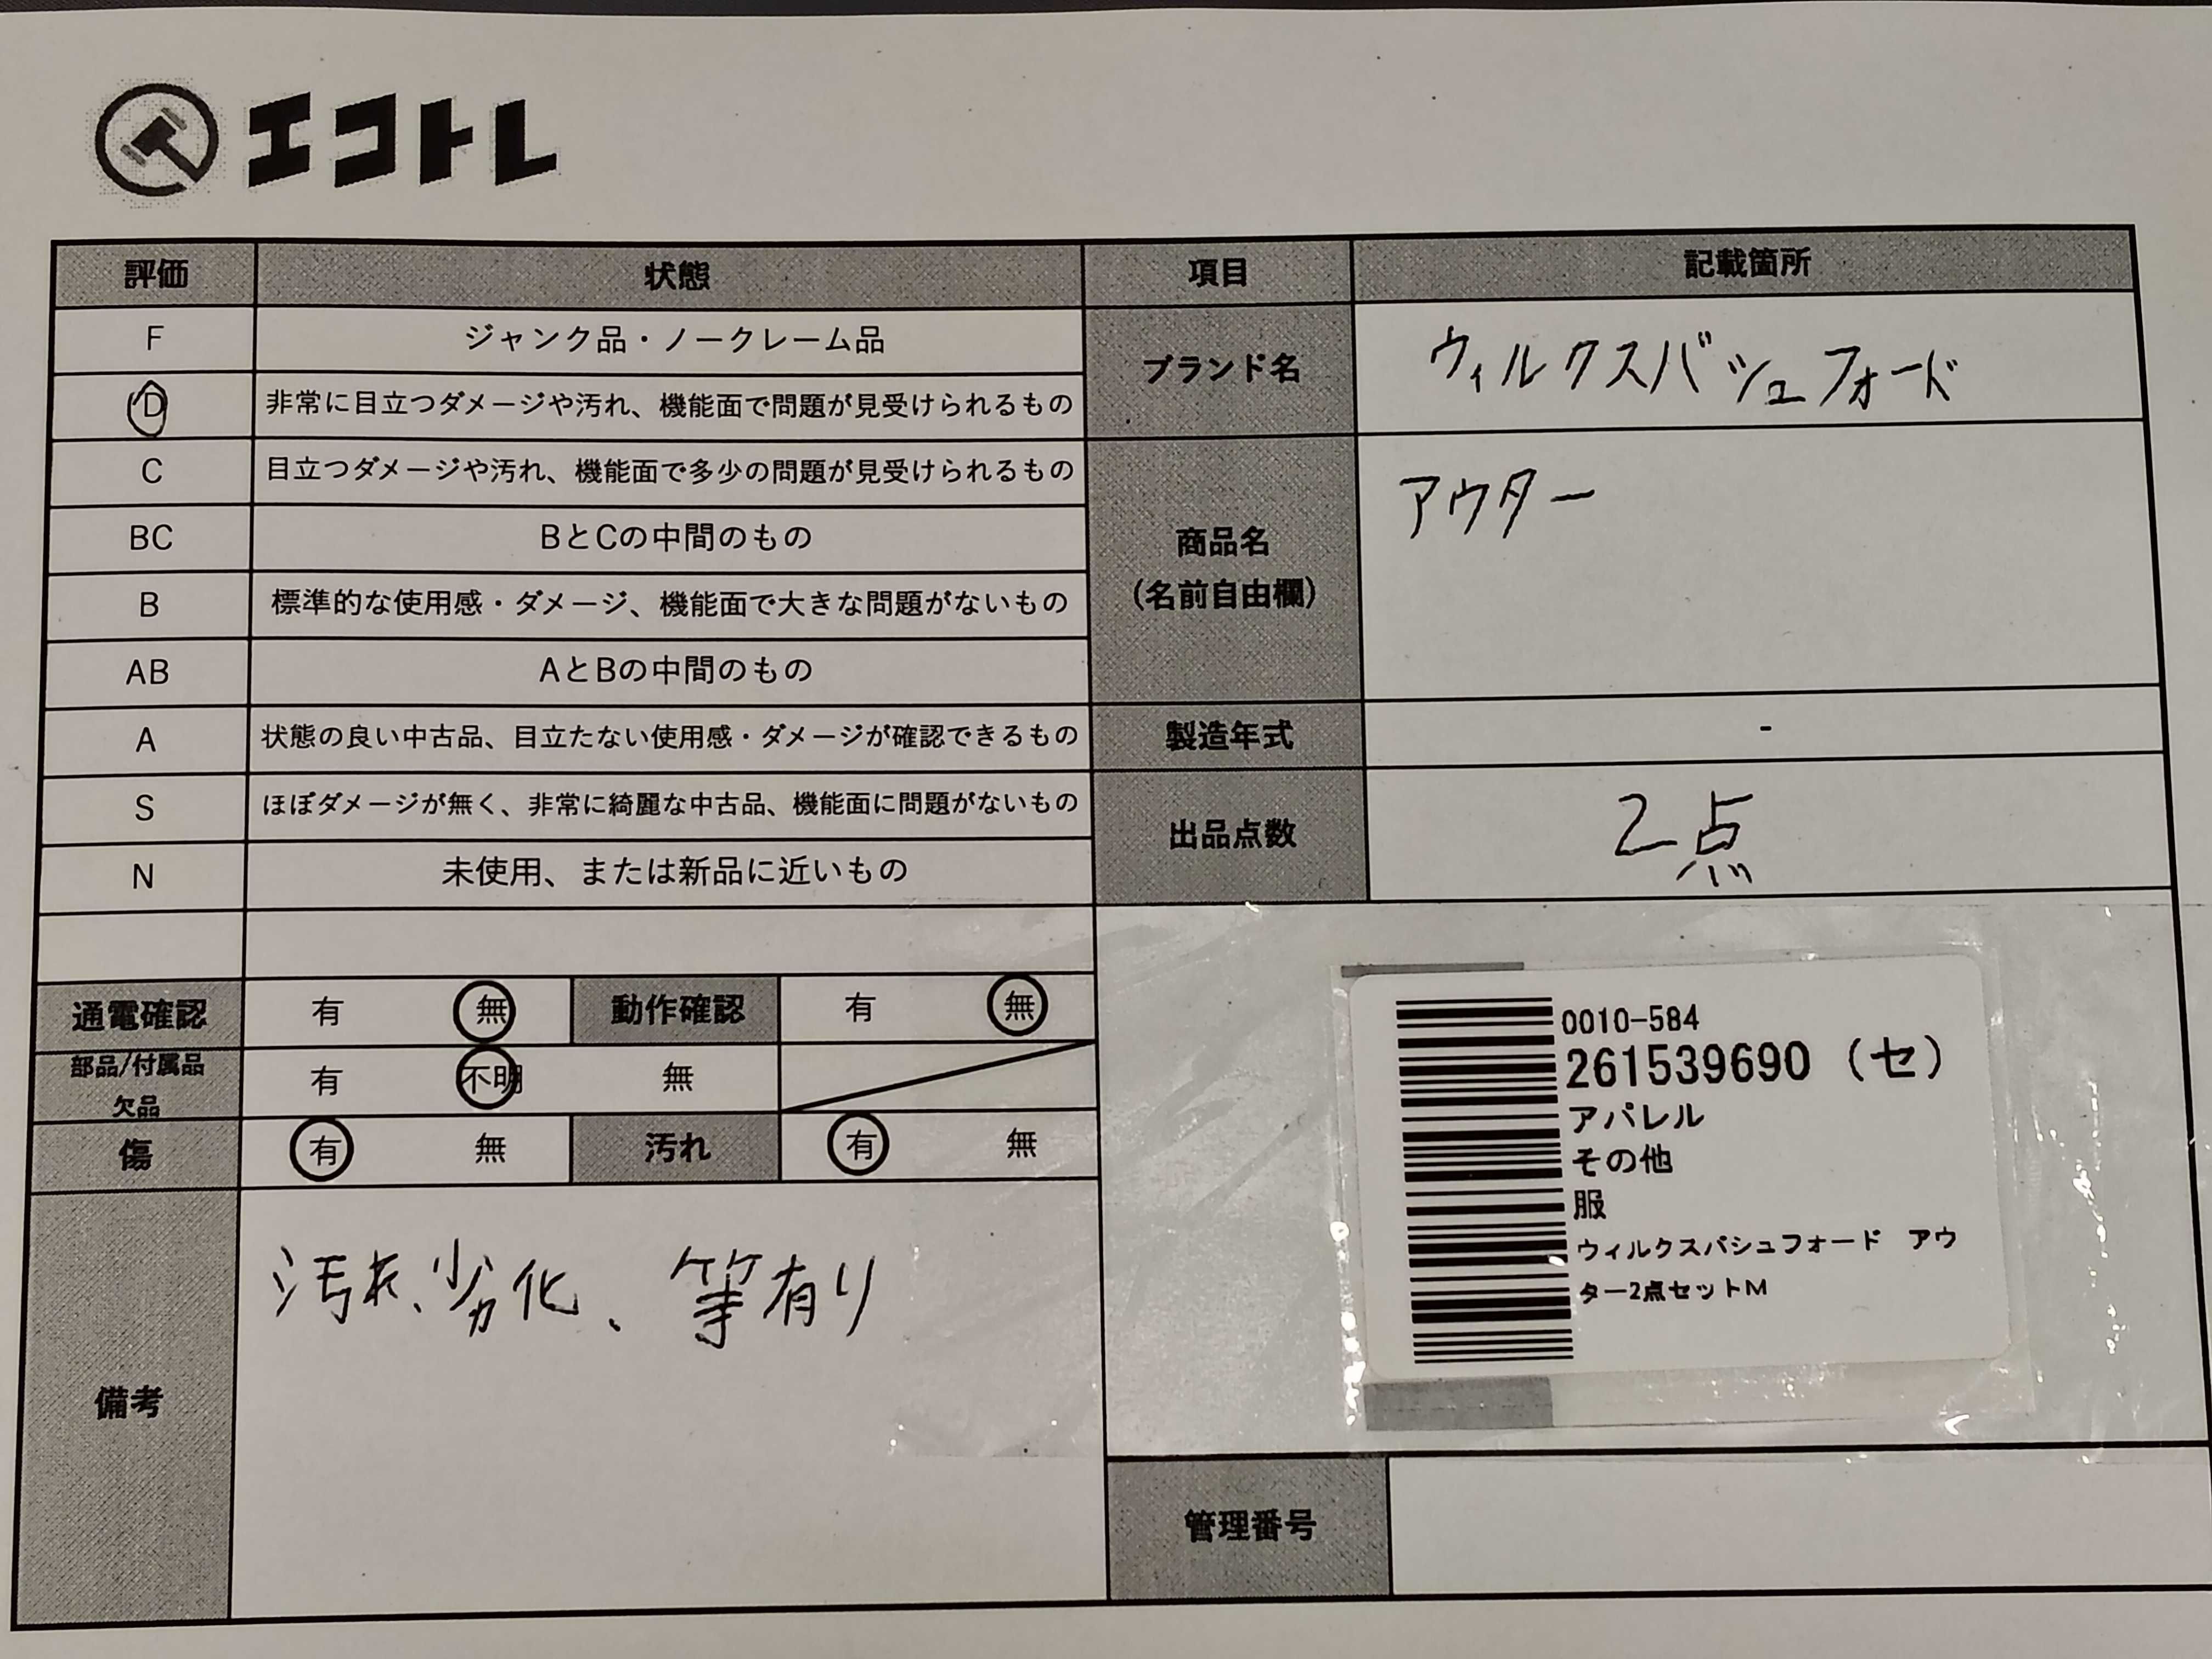 エコトレ
評価 状態 項目 記載箇所
F ジャンク品・ノークレーム品
D 非常に目立つダメージや汚れ、機能面で問題が見受けられるもの
C 目立つダメージや汚れ、機能面で多少の問題が見受けられるもの
BC BとCの中間のもの
B 標準的な使用感・ダメージ、機能面で大きな問題がないもの
AB AとBの中間のもの
A 状態の良い中古品、目立たない使用感・ダメージが確認できるもの
S ほぼダメージが無く、非常に綺麗な中古品、機能面に問題がないもの
N 未使用、または新品に近いもの
ブランド名 ウィルクスバシュフォード
商品名 アウター
(名前自由欄)
製造年式 -
出品点数 2点
通電確認 有 無 動作確認 有 無
部品/付属品
欠品 有 不明 無
傷 有 無 汚れ 有 無
備考 汚れ、劣化、等有り
0010-584
261539690 (セ)
アパレル
その他
服
ウィルクスバシュフォード アウ
ター2点セットM
管理番号